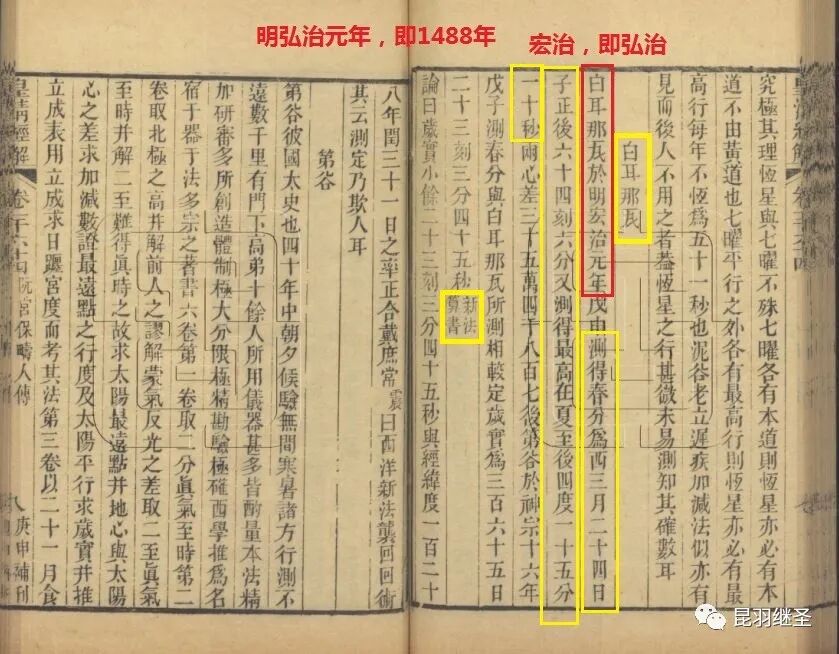 明弘治元年，即1488年
宏治，即弘治
究極其理恆星與七曜不殊七曜各有本道則恆星亦必有本
道不由黃道也七曜平行之外各有最高行則恆星亦必有最
高行每年不恆爲五十一秒也泥谷老立遲疾加減法似亦有
見而後人不用之者葢恆星之行甚微未易測知其確數耳
白耳那瓦
白耳那瓦於明宏治元年戊申測得春分爲西三月二十四日
子正後六十四刻六分又測得最高在夏至後四度一十五分
一十秒兩心差三十五萬四千八百七後第谷於神宗十六年
戊子測春分與白耳那瓦所測相較定歲實爲三百六十五日
二十三刻三分四十五秒新法算書
論曰歲實小餘二十三刻三分四十五秒與經緯度一百二十
八年閏三十一日之率正合戴庶常震曰西洋新法襲回回術
其云測定乃欺人耳
第谷
第谷彼國太史也四十年中朝夕候驗無間寒暑諸方行測不
遠數千里有門下高弟十餘人所用儀器甚多皆酌量本法精
加研審多所創造體制極大分限極精勘驗極確西學推爲名
宿于器于法多宗之著書六卷第一卷取二分眞氣至時第二
卷取北極之高并解前人之謬解蒙氣反光之差取二至眞氣
至時并解二至難得眞時之故求太陽最遠點并地心與太陽
心之差求加減數證最遠點之行度及太陽平行求歲實并推
立成表用立成求日躔宮度而考其法第三卷以二十一月食
皇清經解
阮宮保疇人傳
八
庚申補刊
昆羽继圣